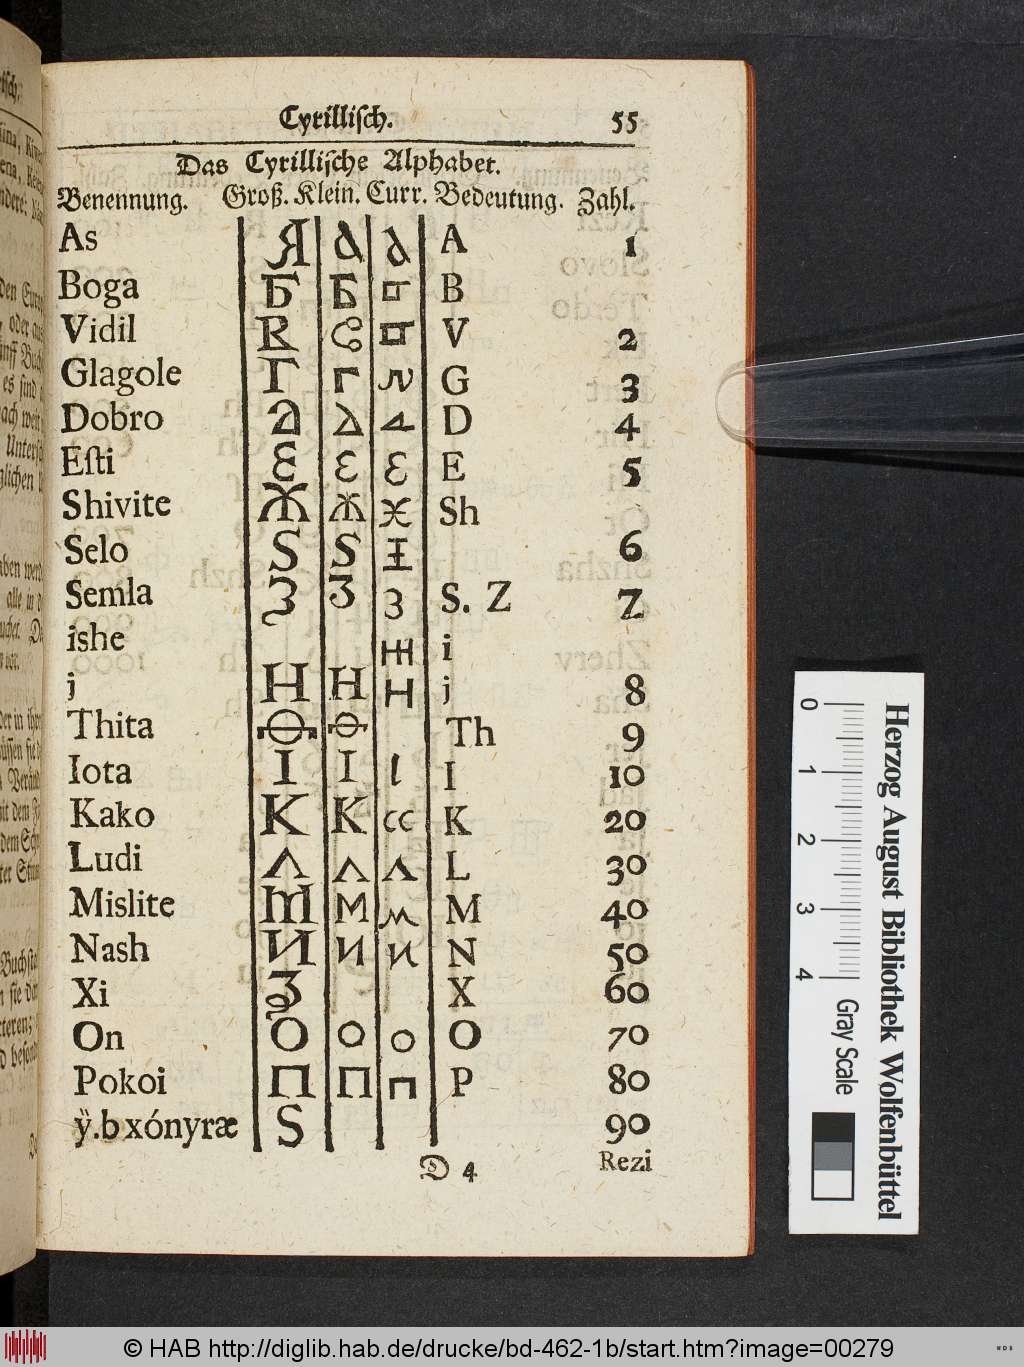 Cyrilliſch. 55
Das Cyrilliſche Alphabet.
Benennung. Groß. Klein. Curr. Bedeutung. Zahl.
As Я А А A 1
Boga Б Б B
Vidil В V 2
Glagole Г Г G 3
Dobro Д Д D 4
Eſti Є Є Є E 5
Shivite Ж Ж Ж Sh
Selo Ѕ Ѕ 6
Semla З З З S. Z 7
ishe i
j Н Н Н j 8
Thita Ѳ Ѳ Th 9
Iota І І І I 10
Kako К К К K 20
Ludi Л Л Л L 30
Mislite М М М M 40
Nash И И И N 50
Xi Ѯ X 60
On О О О O 70
Pokoi П П П P 80
ÿ.b xónyræ Ѕ 90
D 4 Rezi
Herzog August Bibliothek Wolfenbüttel
0 1 2 3 4 Gray Scale
© HAB http://diglib.hab.de/drucke/bd-462-1b/start.htm?image=00279